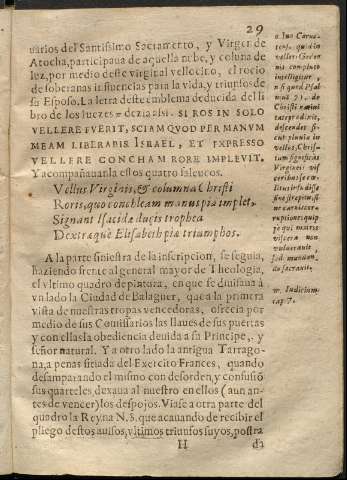 29
uarios del Santissimo Sacramento, y Virgen de
Atocha, participaua de aquella nube, y coluna de
luz, por medio deste virginal vellocino, el rocio
de soberanas influencias para la vida, y triunfos de
su Esposo. La letra deste emblema deducida del li
bro de los Iuezes dezia assi. SI ROS IN SOLO
VELLERE FVERIT, SCIAM QVOD PER MANVM
MEAM LIBERABIS ISRAEL, ET EXPRESSO
VELLERE CONCHAM RORE IMPLEVIT.
Y acompañauanla estos quatro faleucos.
Vellus Virginis, & columna Christi
Roris, quo conchleam manus pia implet.
Signant Isacidæ ducis trophea
Dextræque Elisabeth piæ triumphos.
A la parte siniestra de la inscripcion, se seguia,
haziendo frente al general mayor de Theologia,
el vltimo quadro de pintura, en que se diuisaua à
vn lado la Ciudad de Balaguer, que a la primera
vista de nuestras tropas vencedoras, ofrecia por
medio de sus Comissarios las llaues de sus puertas
y con ellas la obediencia deuida a su Principe, y
señor natural. Y a otro lado la antigua Tarrago-
na, a penas sitiada del Exercito Frances, quando
desamparando el mismo con desorden, y confusiõ
sus quarteles, dexaua al nuestro en ellos (aun an-
tes de vencer) los despojos. Viase a otra parte del
quadro la Reyna N.S. que acauando de recibir el
pliego destos auisos, vltimos triunfos suyos, postra
H da
n. Ivo Carno-
tens. quòd in
vellere Gedeo
nis completo
intelligitur,
nisi quod Psal
mus 71. de
Christi natiui
tate prædixit,
descendet si-
cut pluuia in
vellus, Chris-
tum significãs
Virginis vis
ceribus
illa disse
sine strepitu, si
ne carnis cor
ruptione: quip
pè qui matris
viscera non
vulnerauit,
sed munda
do sacrauit.
m. Iudicum
cap. 7.